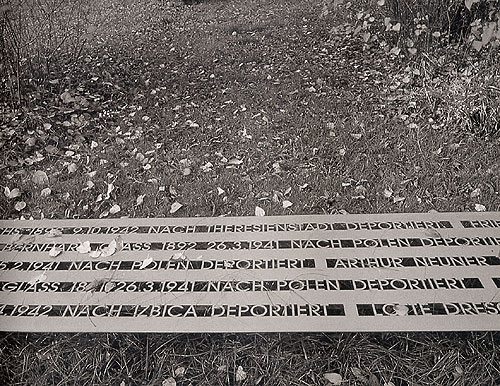 9.10.1942 NACH THERESIENSTADT DEPORTIERT
BERNHARD GLASS 1892 26.3.1941 NACH POLEN DEPORTIERT
1941 NACH POLEN DEPORTIERT ARTHUR NEUNER
GLASS 26.3.1941 NACH POLEN DEPORTIERT
1942 NACH IZBICA DEPORTIERT